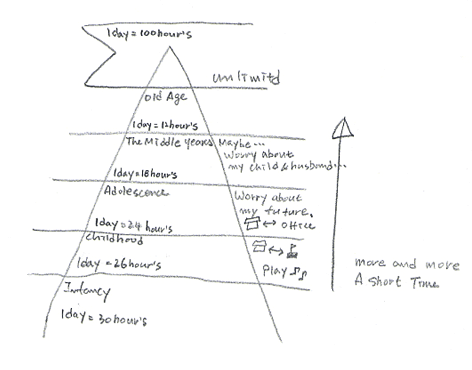 1day = 100hour's
unlimitd
Old Age
1day = 12hour's
The Middle years
Maybe...
Worry about
my child & husbond...
1day = 18hour's
Adolescence
Worry about
my future.
↔ office
1day = 24 hour's
childhood
↔
1day = 26hour's
Play ♫
more and more
A short Time
Infancy
1day = 30hour's